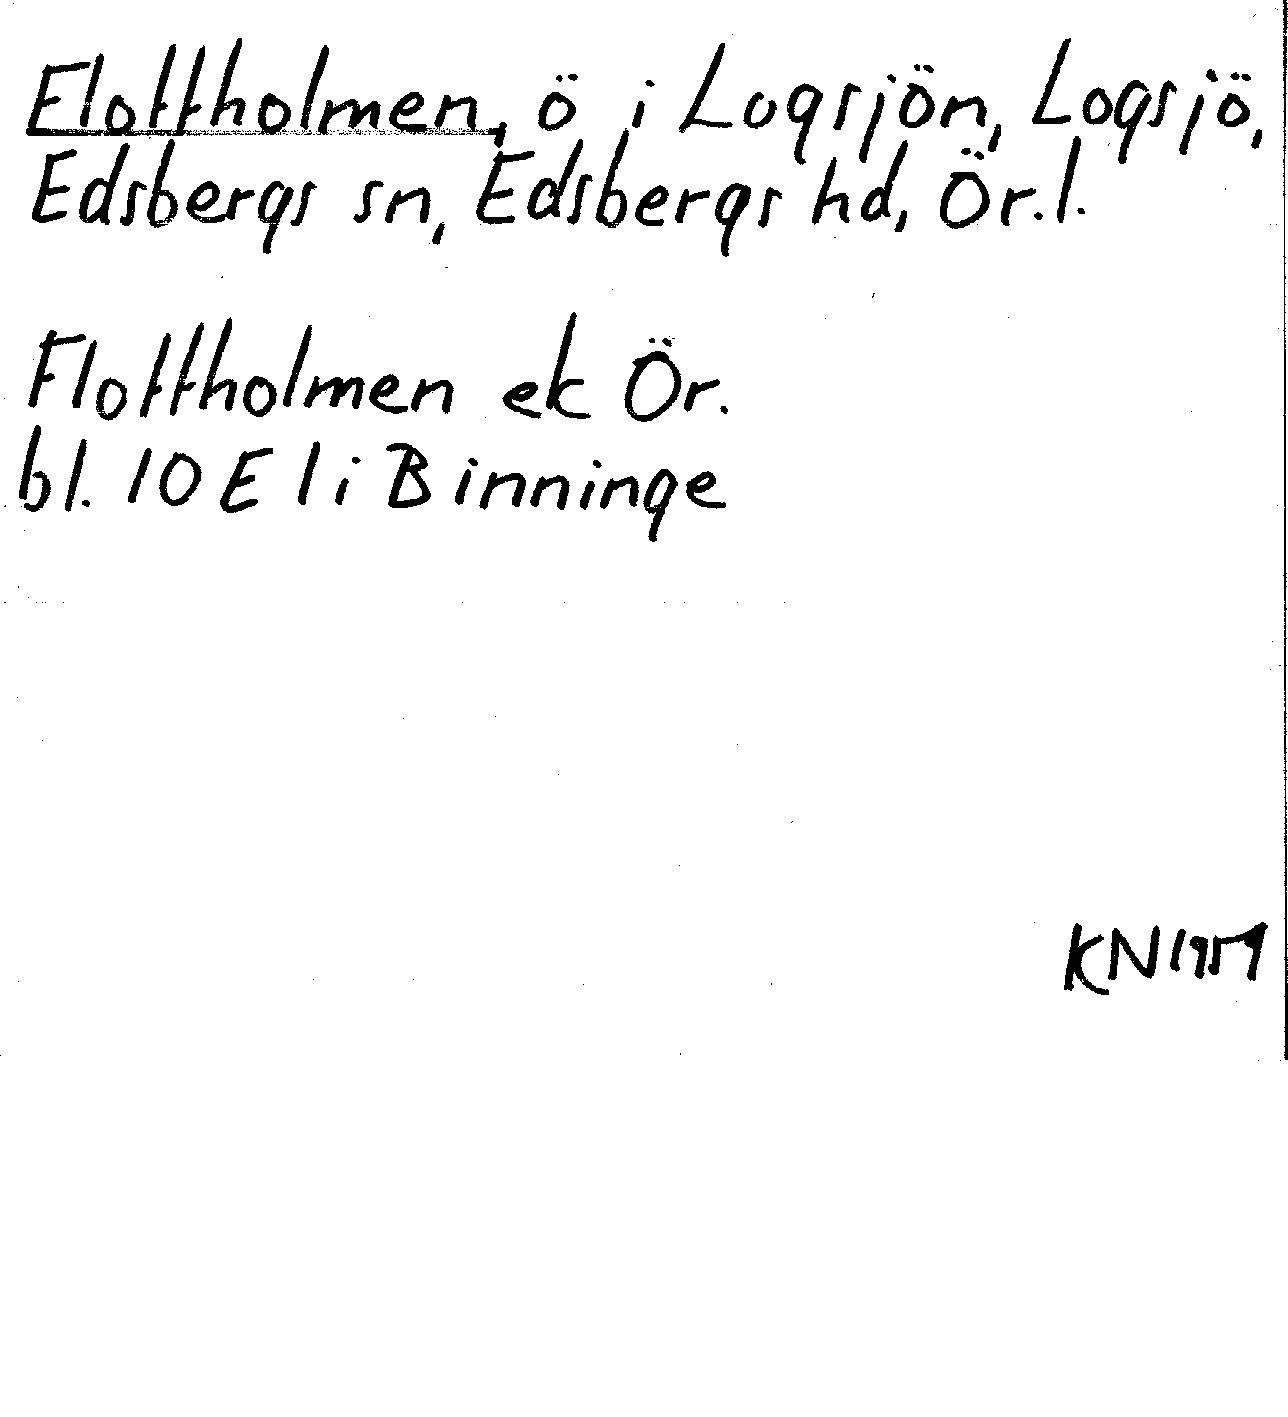 Flottholmen, ö i Logsjön, Logsjö,
Edsbergs sn, Edsbergs hd, Ör.l.
Flottholmen ek Ör.
bl. 10 E 1 i Binninge